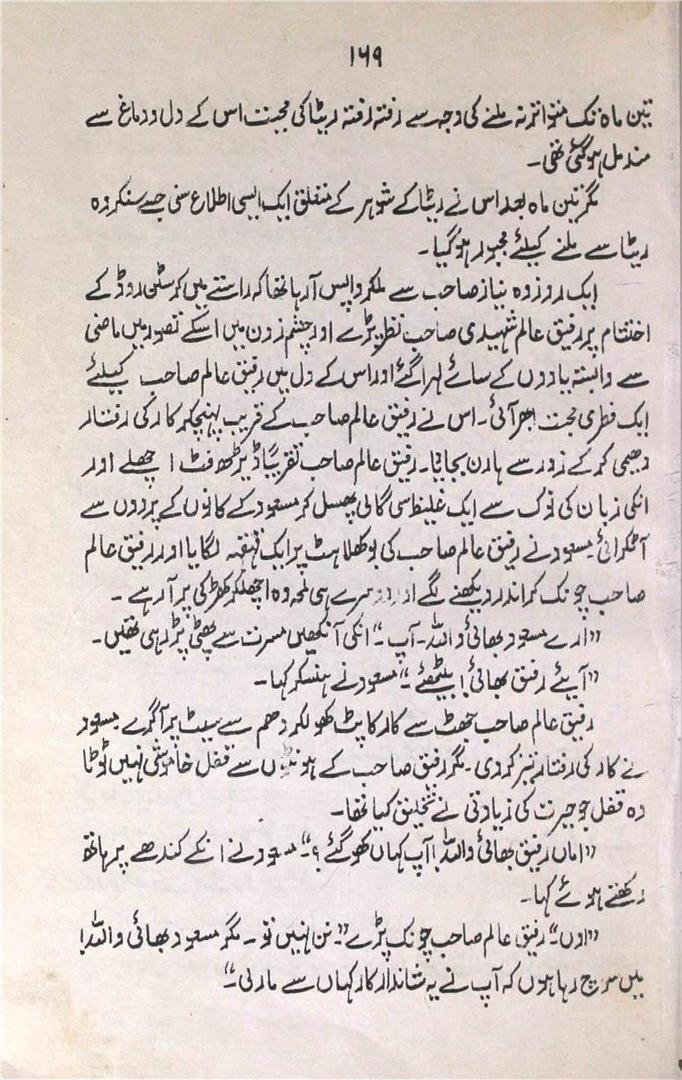 ۱۶۹
تین ماہ تک متواتر نہ ملنے کی وجہ سے رفتہ رفتہ ریٹا کی محبت اس کے دل و دماغ سے
مندمل ہو گئی تھی۔
مگر تین ماہ بعد اس نے ریٹا کے شوہر کے متعلق ایک ایسی اطلاع سنی جسے سنکر وہ
ریٹا سے ملنے کیلئے مجبور ہو گیا۔
ایک روز وہ نیاز صاحب سے ملکر واپس آ رہا تھا کہ راستے میں کرسٹی روڈ کے
اختتام پر رفیق عالم شہیدی صاحب نظر پڑے اور چشم زدن میں اسکے تصور میں ماضی
سے وابستہ یادوں کے سائے لہرا گئے اور اس کے دل میں رفیق عالم صاحب کیلئے
ایک فطری محبت ابھر آئی۔ اس نے رفیق عالم صاحب کے قریب پہنچکر کار کی رفتار
دھیمی کر کے زور سے ہارن بجایا۔ رفیق عالم صاحب تقریباً ڈیڑھ فٹ اچھلے اور
انکی زبان کی نوک سے ایک غلیظ سی گالی پھسل کر مسعود کے کانوں کے پردوں سے
آ ٹکرائی۔ مسعود نے رفیق عالم صاحب کی بوکھلاہٹ پر ایک قہقہہ لگایا اور رفیق عالم
صاحب چونک کر اندر دیکھنے لگے اور دوسرے ہی لمحہ وہ اچھلکر کھڑکی پر آ رہے ۔
”ارے مسعود بھائی واللہ۔ آپ۔“ انکی آنکھیں مسرت سے پھٹی پڑ رہی تھیں۔
”آیئے رفیق بھائی! بیٹھئے۔“ مسعود نے ہنسکر کہا۔
رفیق عالم صاحب جھٹ سے کار کا پٹ کھولکر دھم سے سیٹ پر آ گرے۔ مسعود
نے کار کی رفتار تیز کر دی۔ مگر رفیق صاحب کے ہونٹوں سے قفل خاموشی نہیں ٹوٹا
وہ قفل جو حیرت کی زیادتی نے تخلیق کیا تھا۔
”اماں رفیق بھائی واللہ! آپ کہاں کھو گئے؟“ مسعود نے انکے کندھے پر ہاتھ
رکھتے ہوئے کہا۔
”اوں“ رفیق عالم صاحب چونک پڑے ”نن نہیں تو۔ مگر مسعود بھائی واللہ!
میں سوچ رہا ہوں کہ آپ نے یہ شاندار کار کہاں سے مار لی۔“